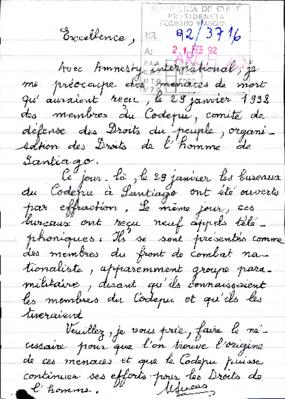 REPUBLICA DE CHILE
PRESIDENCIA
REGISTRO Y ARCHIVO
NR. 92/3716
A: 21 FEB 92
Excellence,
Avec Amnesty International, je
me préoccupe des menaces de mort
qu'auraient reçu, le 29 janvier 1992
des membres du Codepu, comité de
défense des Droits du peuple, organi-
sation des Droits de l'homme de
Santiago.
Ce jour-là, le 29 janvier les bureaux
du Codepu à Santiago ont été ouverts
par effraction. Le même jour, ces
bureaux ont reçu neuf appels télé-
phoniques: Ils se sont présentés comme
des membres du front de combat na-
tionaliste, apparemment groupe para-
militaire, disant qu'ils connaissaient
les membres du Codepu et qu'ils les
tueraient
Veuillez, je vous prie, faire le né-
cessaire pour que l'on trouve l'origine
de ces menaces et que le Codepu puisse
continuer ses efforts pour les Droits de
l'homme. MLucas